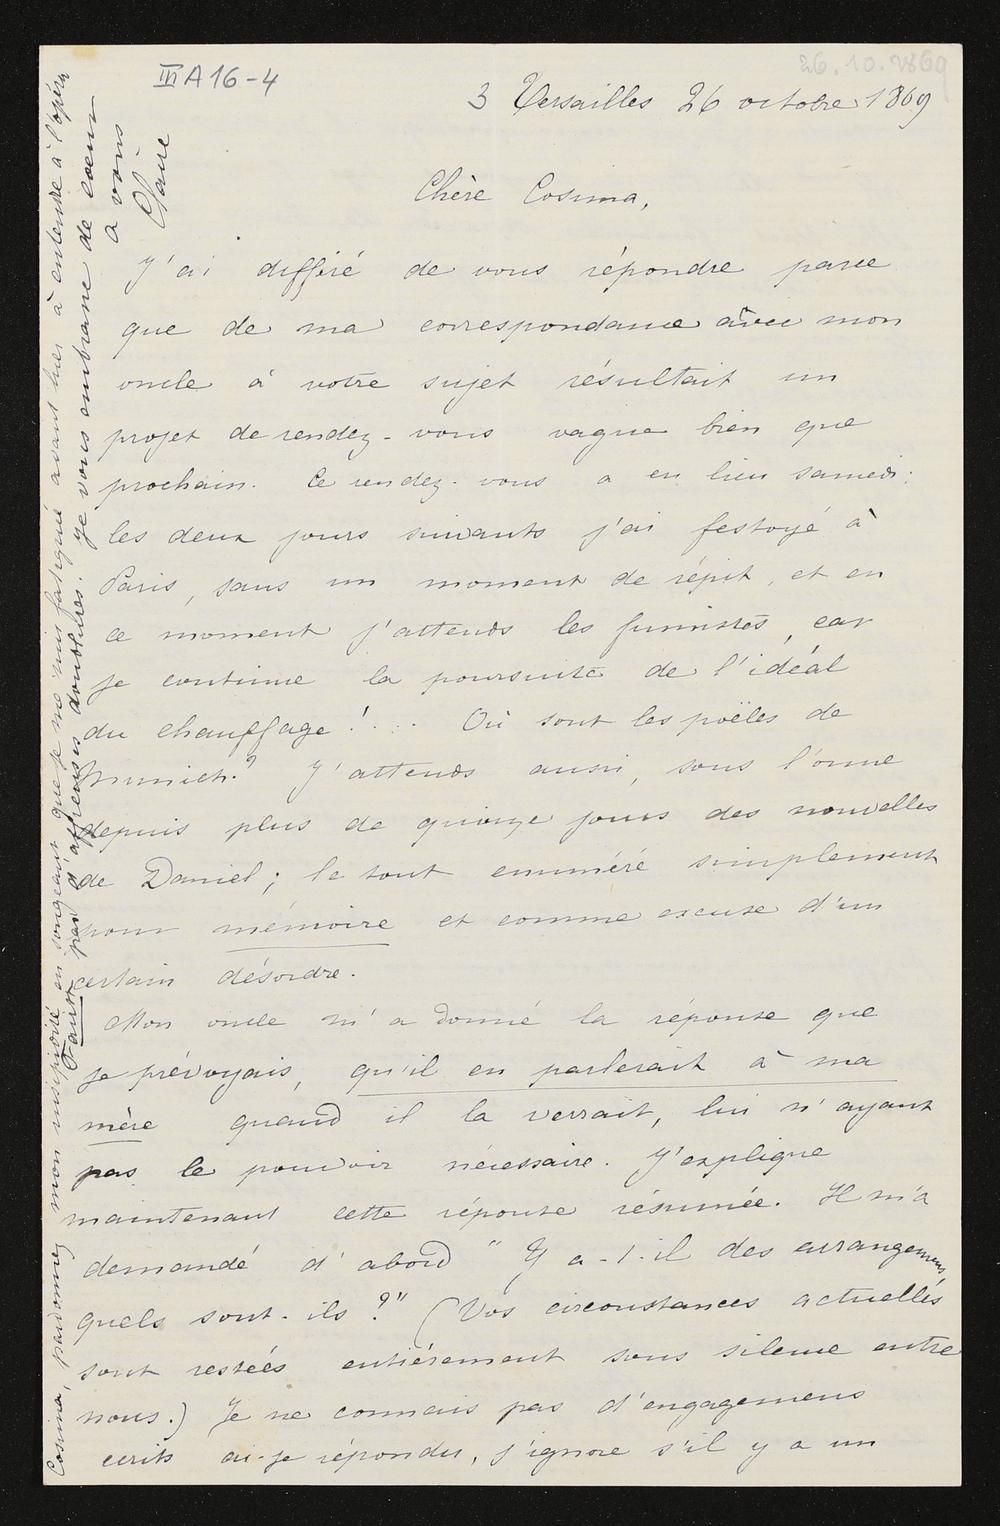 III A 16-4
26.10.1869
3 Versailles 26 octobre 1869
Chère Cosima,
J'ai différé de vous répondre parce
que de ma correspondance avec mon
oncle à votre sujet résultait un
projet de rendez-vous vague bien que
prochain. Ce rendez-vous a eu lieu samedi;
les deux jours suivants j'ai festoyé à
Paris, sans un moment de répit, et en
ce moment j'attends les fumistes, car
je continue la poursuite de l'idéal
du chauffage!... Où sont les poëles de
Munich? J'attends aussi, sous l'orme
depuis plus de quinze jours des nouvelles
de Daniel; le tout énuméré simplement
pour mémoire et comme excuse d'un
certain désordre.
Mon oncle m'a donné la réponse que
je prévoyais, qu'il en parlerait à ma
mère quand il la verrait, lui n'ayant
pas le pouvoir nécessaire. J'explique
maintenant cette réponse résumée. Il m'a
demandé d'abord "Y a-t-il des arrangemens,
quels sont-ils?" (Vos circonstances actuelles
sont restées entièrement sous silence entre
nous.) Je ne connais pas d'engagemens
écrits ai-je répondu, j'ignore s'il y a un
Cosima, pardonnez mon insipidité en songeant que je me suis fatiguée avant hier à entendre à l'opéra
Faust pas d'affreuses doublures. Je vous embrasse de coeur
à vous
Claire